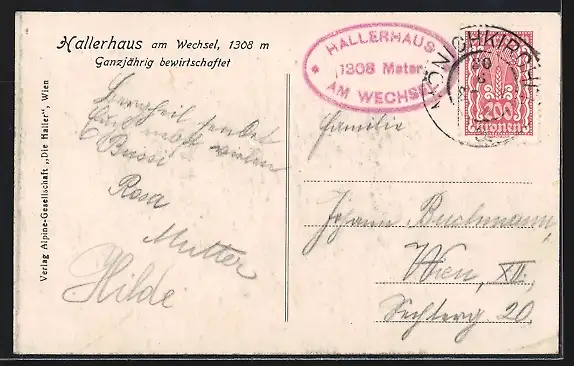 Hallerhaus am Wechsel, 1308 m
Ganzjährig bewirtschaftet
HALLERHAUS
1308 Meter
AM WECHSEL
200
Kronen
Bergheil sendet
Bussi
Rosa
Mutter
Hilde
Familie
Johann Buchmann,
Wien, XII.,
20
Verlag Alpine-Gesellschaft „Die Haller", Wien